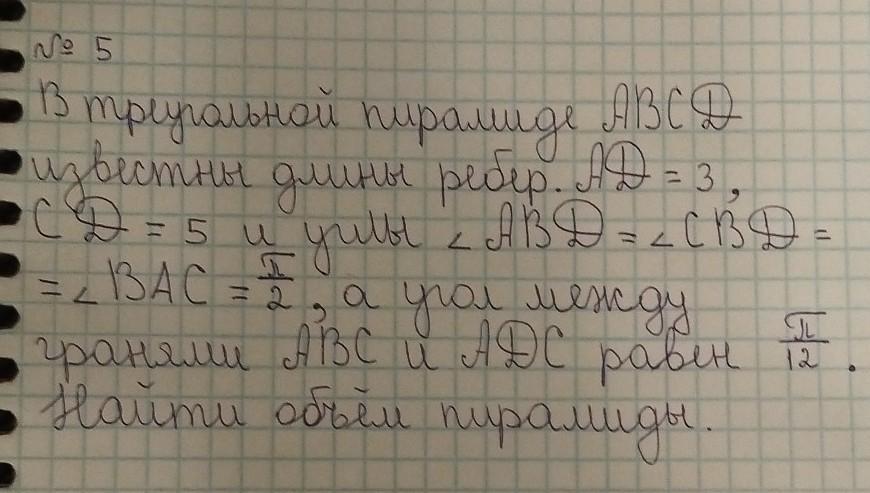 № 5
В треугольной пирамиде ABCD
известны длины ребер. AD = 3,
CD = 5 и углы ∠ABD = ∠CBD =
= ∠BAC = π/2, а угол между
гранями ABC и ADC равен π/12.
Найти объём пирамиды.